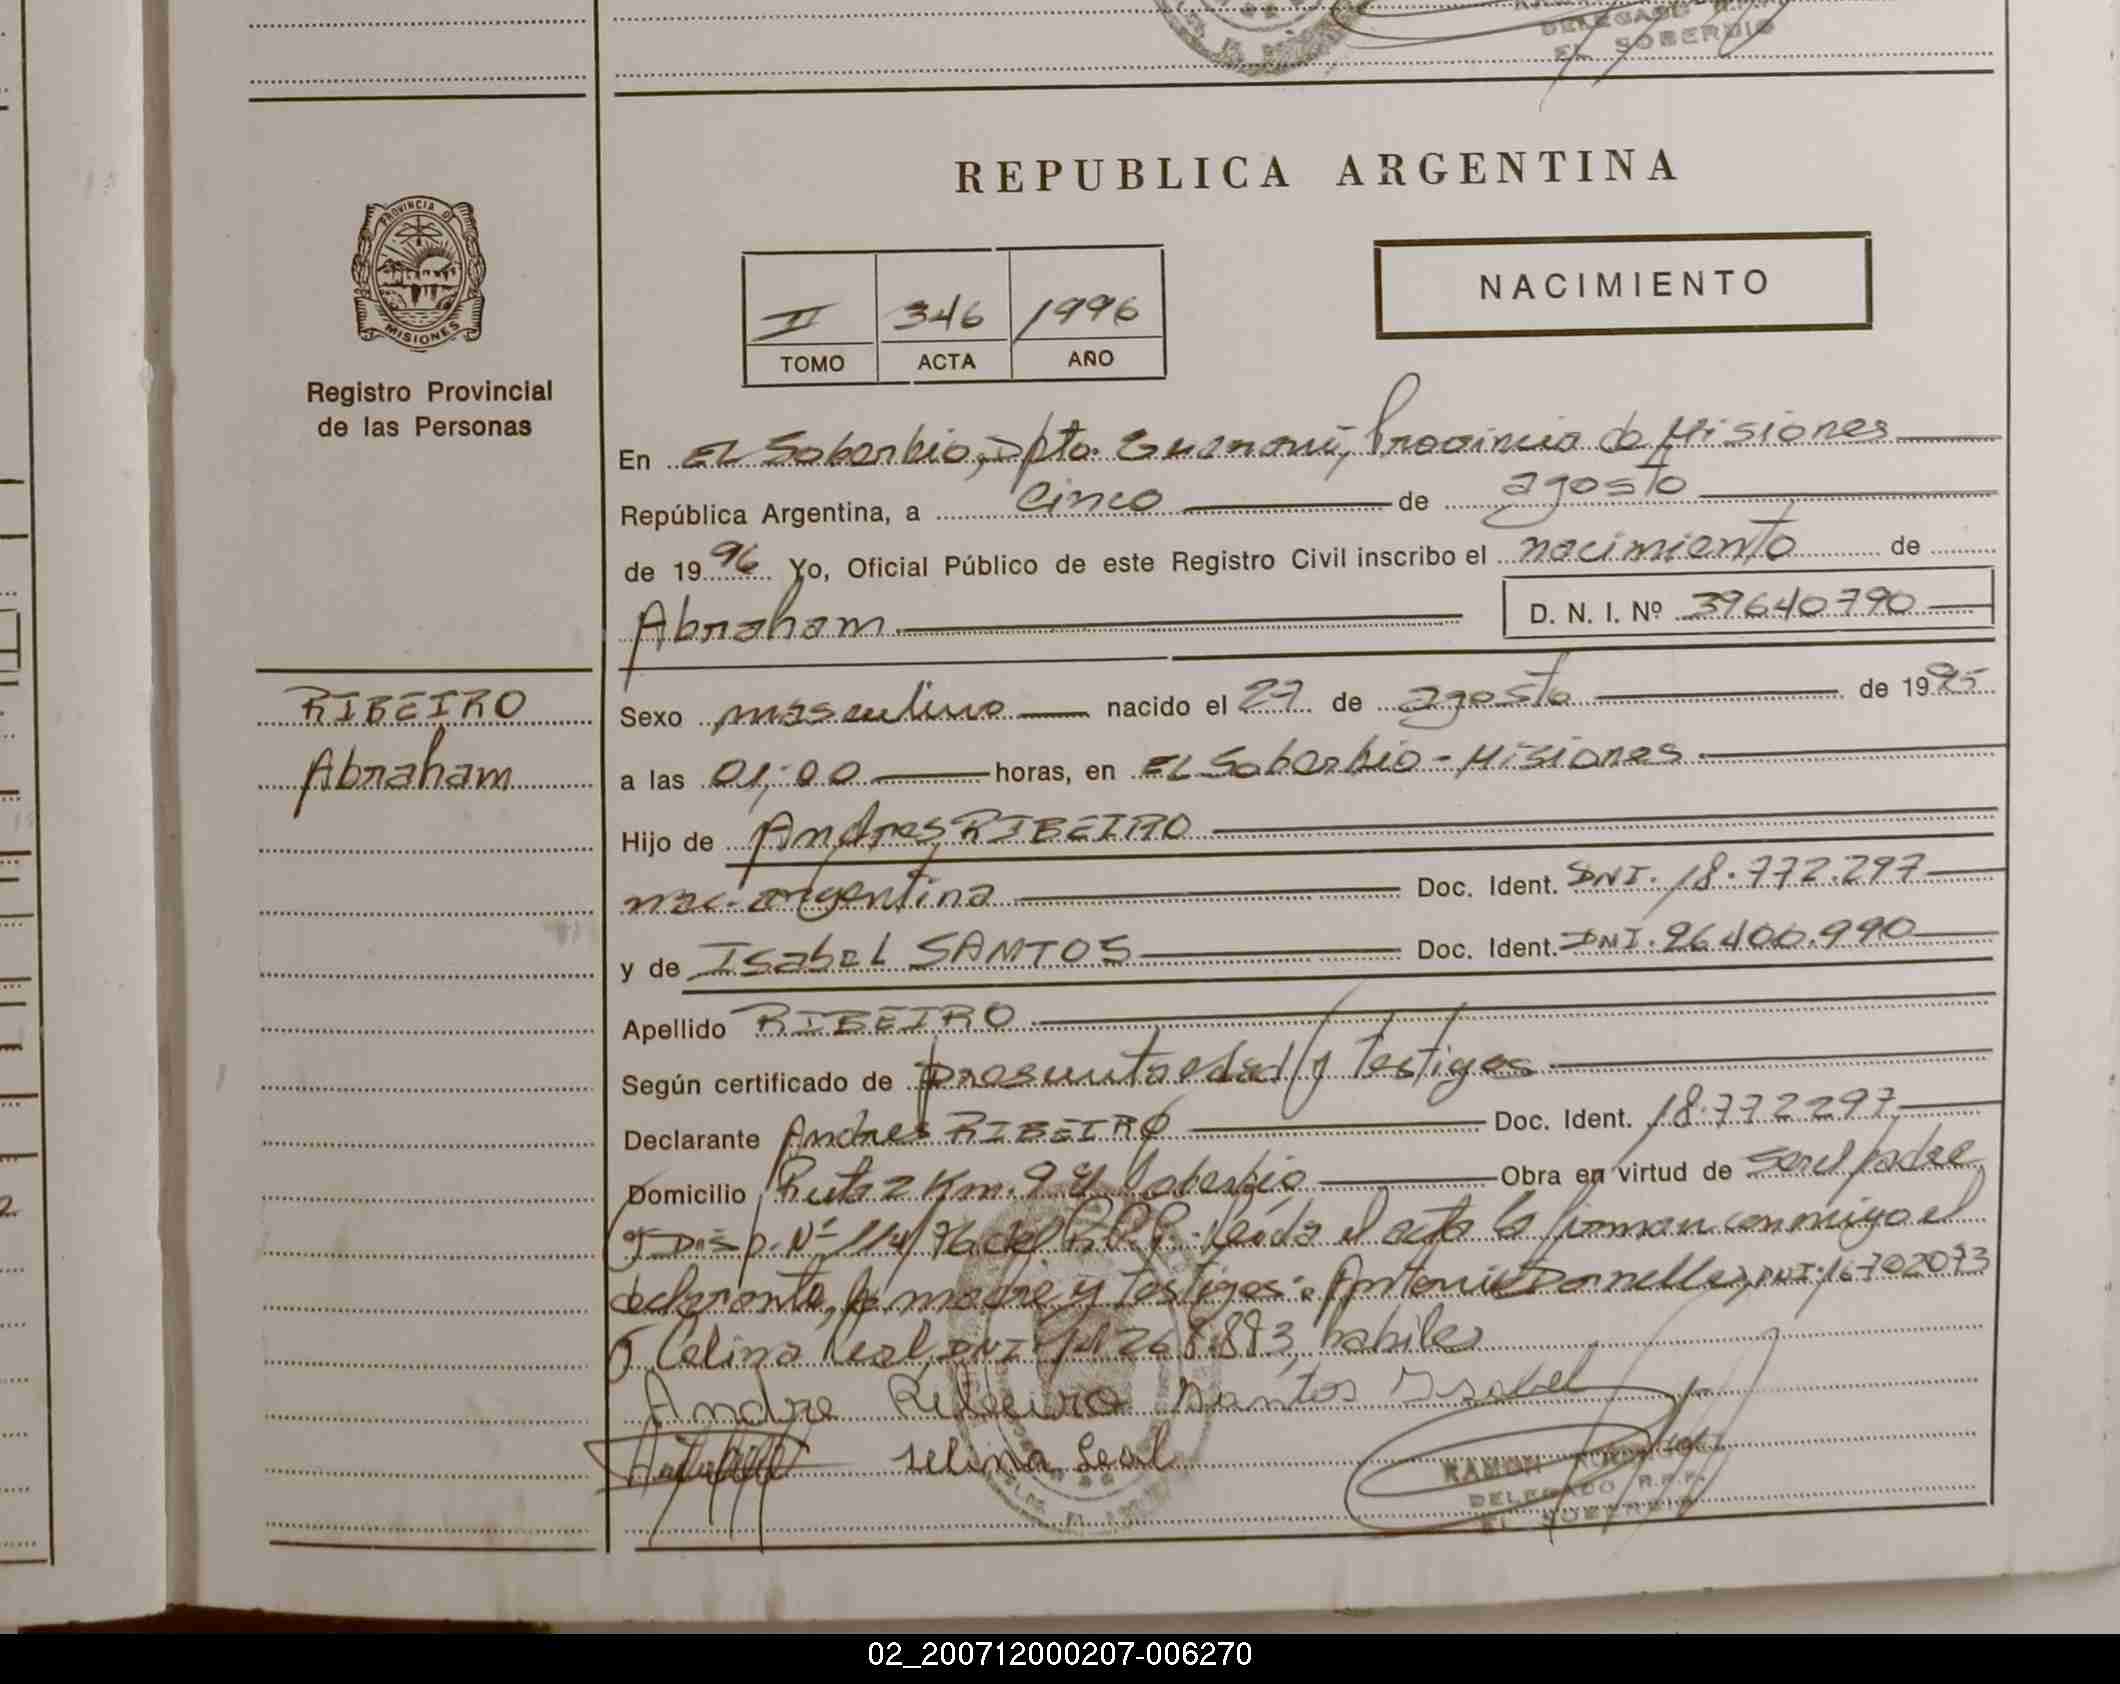 DELEGADO
EL SOBERBIO
REPUBLICA ARGENTINA
PROVINCIA D
MISIONES
Registro Provincial
de las Personas
II 346 1996
TOMO ACTA AÑO
NACIMIENTO
En EL Soberbio, Dpto. Guaraní, Provincia de Misiones
República Argentina, a cinco de agosto
de 1996 Yo, Oficial Público de este Registro Civil inscribo el nacimiento de
Abraham D. N. I. Nº 39640790
RIBEIRO
Abraham
Sexo masculino nacido el 27 de agosto de 1995
a las 01:00 horas, en EL Soberbio - Misiones
Hijo de Andres RIBEIRO
nac. argentina Doc. Ident. DNI. 18.772.297
y de ISabEL SANTOS Doc. Ident. DNI. 96400.990
Apellido RIBEIRO
Según certificado de presunta edad y testigos
Declarante Andres RIBEIRO Doc. Ident. 18.772297
Domicilio Ruta 2 Km. 9 El Soberbio Obra en virtud de ser el padre
y Disp. Nº 114/76 del R.P.P. Leída el acta la firman conmigo el
declarante, la madre y testigos: Antonio Dornelles, DNI. 16702073
y Celina Leal, DNI. 14.268.893, habiles
Andre Ribeiro Santos Isabel
selina Leal
RAMON
DELEGADO R.P.P.
EL SOBERBIO
02_200712000207-006270